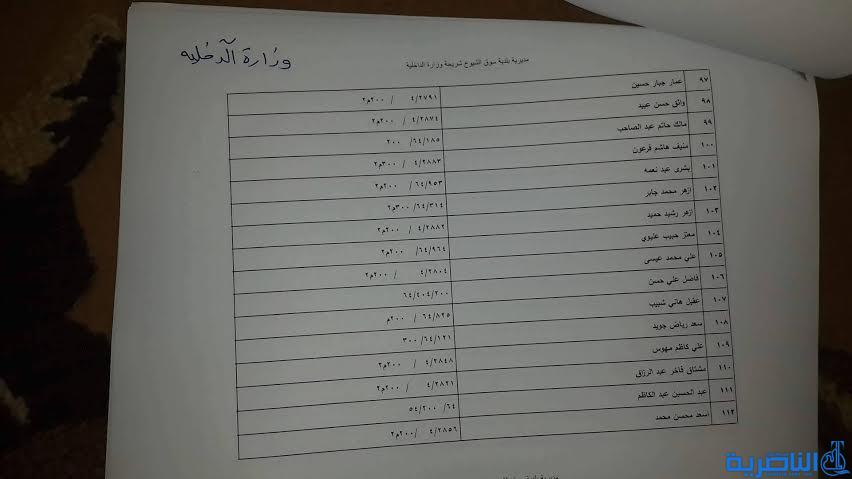 وزارة الدخليه
مديرية بلدية سوق الشيوخ شريحة وزارة الداخلية
٩٧ عمار جبار حسين ٤/٢٧٩١ / ٢٠٠م٢
٩٨ واثق حسن عبيد ٤/٢٨٧٤ / ٢٠٠م٢
٩٩ مالك حاتم عبد الصاحب ٦٤/١٨٥/ ٢٠٠
١٠٠ منيف هاشم فرعون ٤/٢٨٨٣ / ٣٠٠م٢
١٠١ بشرى عبد نعمه ٦٤/٩٥٣/ ٢٠٠م٢
١٠٢ ازهر محمد جابر ٦٤/٣١٤/ ٣٠٠م٢
١٠٣ ازهر رشيد حميد ٤/٢٨٨٢ / ٢٠٠م٢
١٠٤ معتز حبيب عليوي ٦٤/٩٦٤/ ٢٠٠م٢
١٠٥ علي محمد عيسى ٤/٢٨٠٤ / ٢٠٠م٢
١٠٦ فاضل علي حسن ٦٤/٤٠٤/٢٠٠
١٠٧ عقيل هاني شبيب ٦٤/٨٢٥/ ٢٠٠م
١٠٨ سعد رياض جويد ٦٤/١٢١/ ٣٠٠
١٠٩ علي كاظم مهوس ٤/٢٨٤٨ / ٢٠٠م٢
١١٠ مشتاق فاخر عبد الرزاق ٤/٢٨٢١ / ٢٠٠م٢
١١١ عبد الحسين عبد الكاظم ٦٤/ ٥٤/٢٠٠
١١٢ اسعد محسن محمد ٤/٢٨٥٦ /٢٠٠م٢
الناصرية